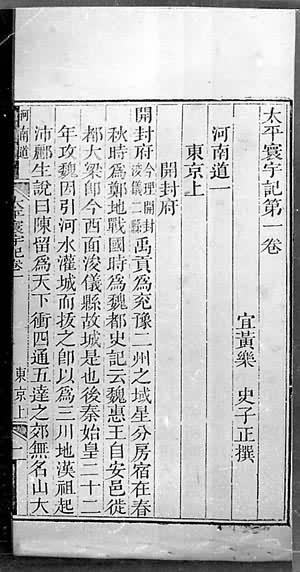 太平寰宇記第一卷
宜黃樂　史子正撰
河南道一
東京上
開封府
開封府今理開封浚儀二縣禹貢爲兗豫二州之域星分房宿在春
秋時爲鄭地戰國時爲魏都史記云魏惠王自安邑徙
都大梁卽今西面浚儀縣故城是也後秦始皇二十二
年攻魏因引河水灌城而拔之卽以爲三川地漢祖起
沛酈生說曰陳留爲天下衝四通五達之郊無名山大
河南道　太平寰宇記卷一　東京上　一